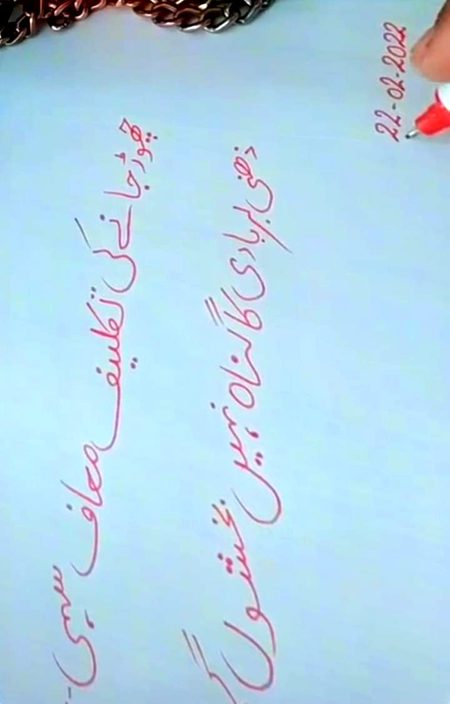 چھوڑ جانے کی تکلیف معاف سہی-
ذہنی بربادی کا گناہ نہیں بخشوں
22-02-2022